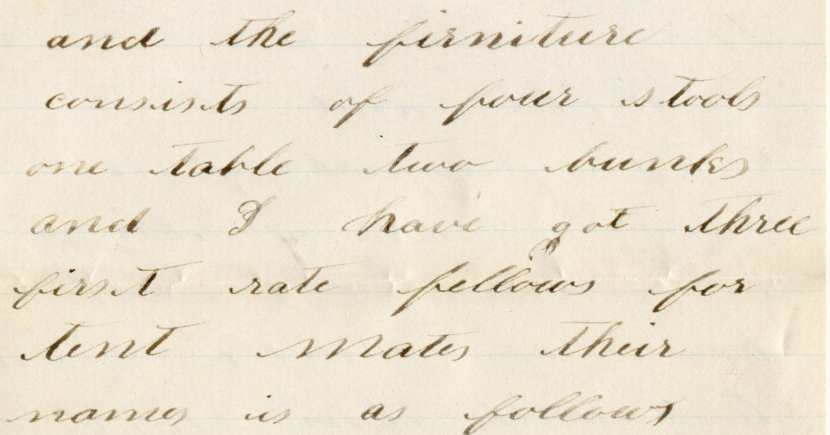 and the firniture
consists of four stools
one table two bunks
and I have got three
first rate fellows for
tent mates their
names is as follows